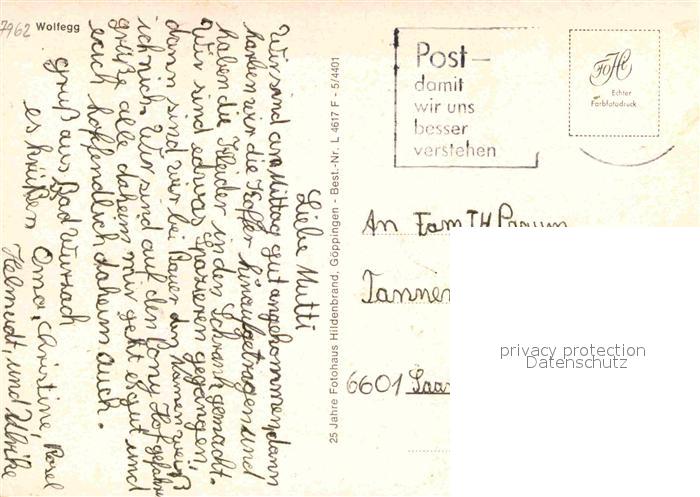 7962 Wolfegg
Liebe Mutti
Wir sind am Mittag gut angekommen, dann
harben wir die Koffer hinaufgetragen und
haben die Kleider in den Schrank gemacht.
Wir sind edwas spazieren gegangen,
dann sind wir bei Bauer den Namen weiß
ich nich. Wir sind auf den Pony Hof gefahren
grüße alle daheim mir geht es gut und
euch hoffendlich daheim auch.
Gruß aus Bad Wurzach
es grüßen Oma, Christine, Rosel
Helmudt, und Ulrike
25 Jahre Fotohaus Hildenbrand, Göppingen - Best.-Nr. L 4617 F - 5/4401
Post–
damit
wir uns
besser
verstehen
FoHi
Echter
Farbfotodruck
An Fam TH
Tannen
6601 Saar
privacy protection
Datenschutz